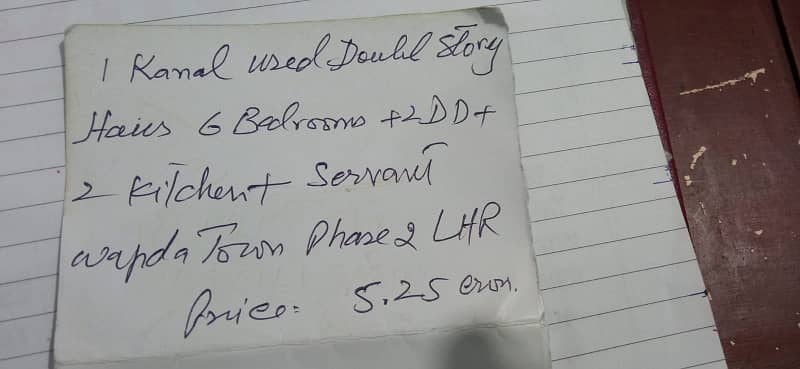 1 Kanal used Doubl Story
Haies 6 Bedrooms +2DD+
2 Kitchent Servant
wapda Town Phase 2 LHR
Price: 5.25 cror.